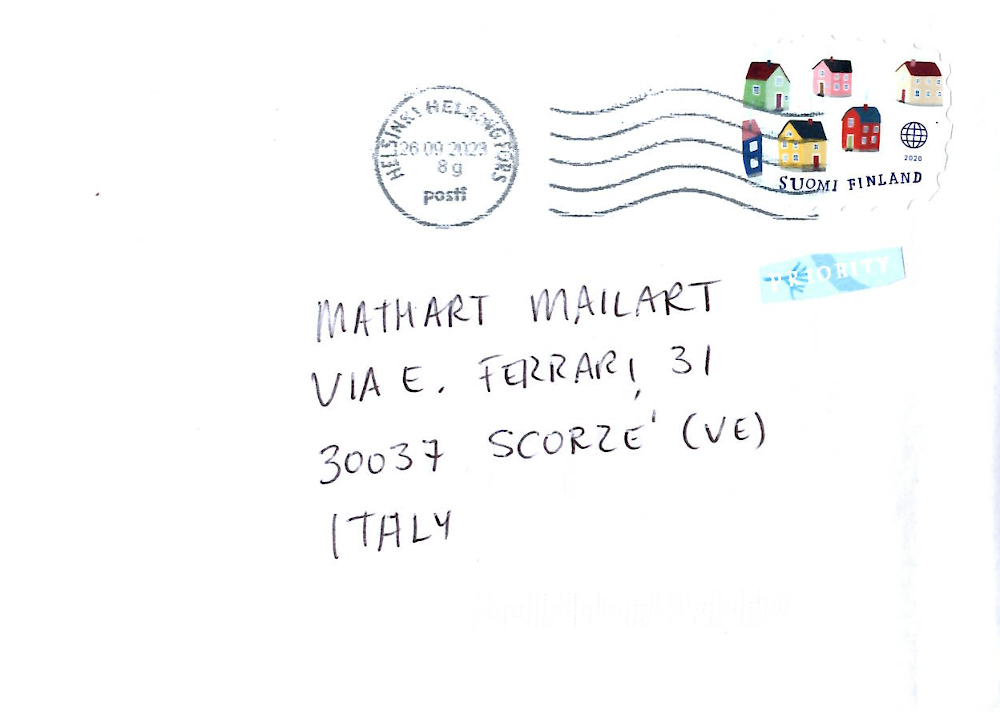 HELSINKI HELSINGFORS
26 09 2023
8 g
posti
2020
SUOMI FINLAND
PRIORITY
MATHART MAILART
VIA E. FERRARI, 31
30037 SCORZE' (VE)
ITALY